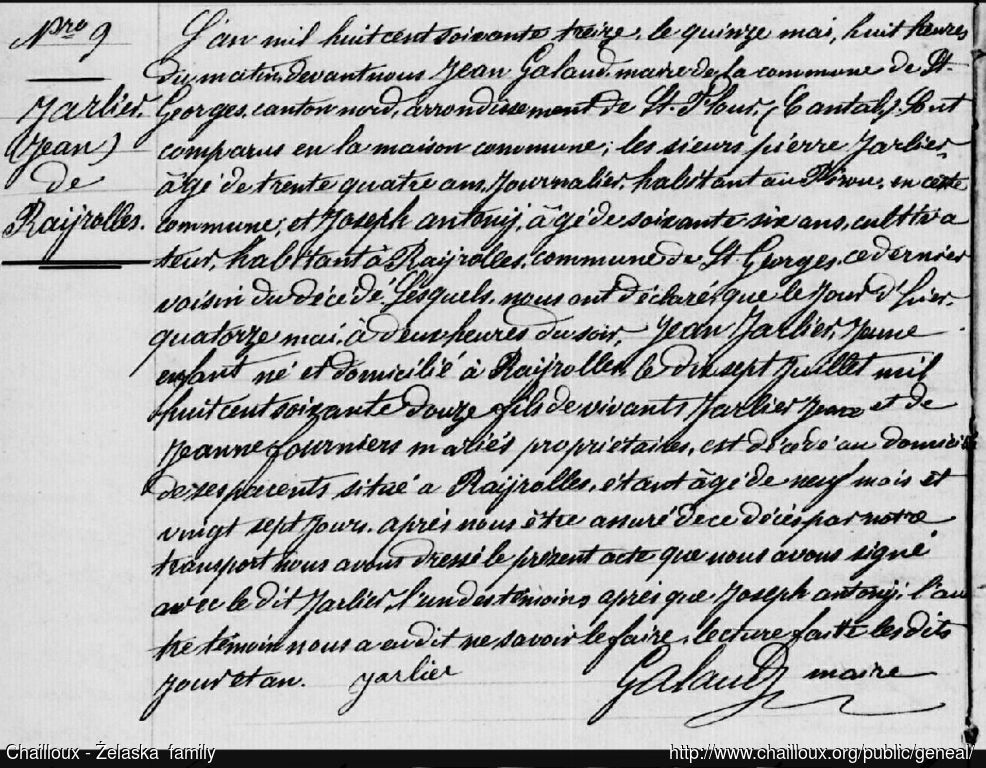 Nro 9
Jarlier
(Jean)
de
Raijrolles.
L'an mil huit cent soixante treize, le quinze mai, huit heures
du matin, devant nous Jean Galaud, maire de la commune de St.
Georges, canton nord, arrondissement de St. Flour, (Cantal), sont
comparus en la maison commune; les sieurs pierre Jarlier,
âgé de trente quatre ans, Journalier, habitant au en cette
commune; et Joseph antonij, âgé de soixante six ans, cultiva
teur, habitant à Raijrolles, commune de St Georges, ce dernier
voisin du décédé. Lesquels, nous ont déclaré, que le jour d'hier
quatorze mai, à deux heures du soir, Jean Jarlier, Jeune
enfant né et domicilié à Raijrolles le dix sept Juillet mil
huit cent soixante douze fils de vivants Jarlier et de
Jeanne fourniers mariés propriétaires, est décédé au domicile
de ses parents situé a Raijrolles, étant âgé de neuf mois et
vingt sept Jours. après nous être assuré de ce décès par notre
transport nous avons dressé le présent acte que nous avons signé
avec le dit Jarlier, l'un des témoins après que Joseph antonij, l'au
tre témoin nous a eu dit ne savoir le faire, lecture faite les dits
Jour et an. Jarlier Galaud maire
Chailloux - Želaska family
http://www.chailloux.org/public/geneal/